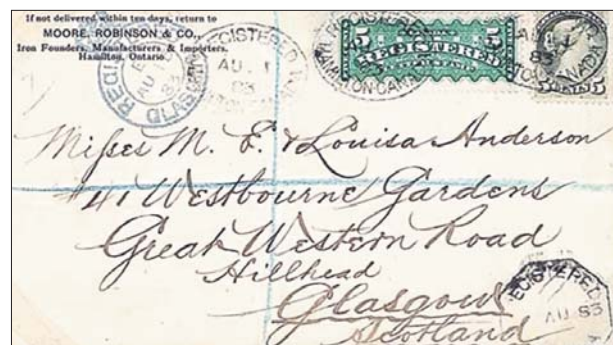 If not delivered within ten days, return to
MOORE, ROBINSON & CO.,
Iron Founders, Manufacturers & Importers.
Hamilton, Ontario.
REGISTERED
GLASGOW
AU
83
REGISTERED
AU
83
HAMILTON CANADA
5 5
REGISTERED
REGISTERED
HAMILTON-CANADA
AU
83
CANADA
5 CENTS 5
Misses M. E. & Louisa Anderson
41 Westbourne Gardens
Great Western Road
Hillhead
Glasgow
Scotland
REGISTERED
AU 83